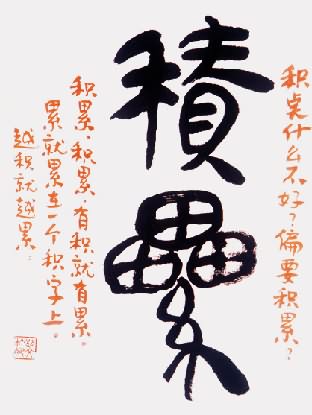 積纍
积点什么不好？偏要积累？
积累，积累，有积就有累。
累就累在一个积字上。
越积就越累。